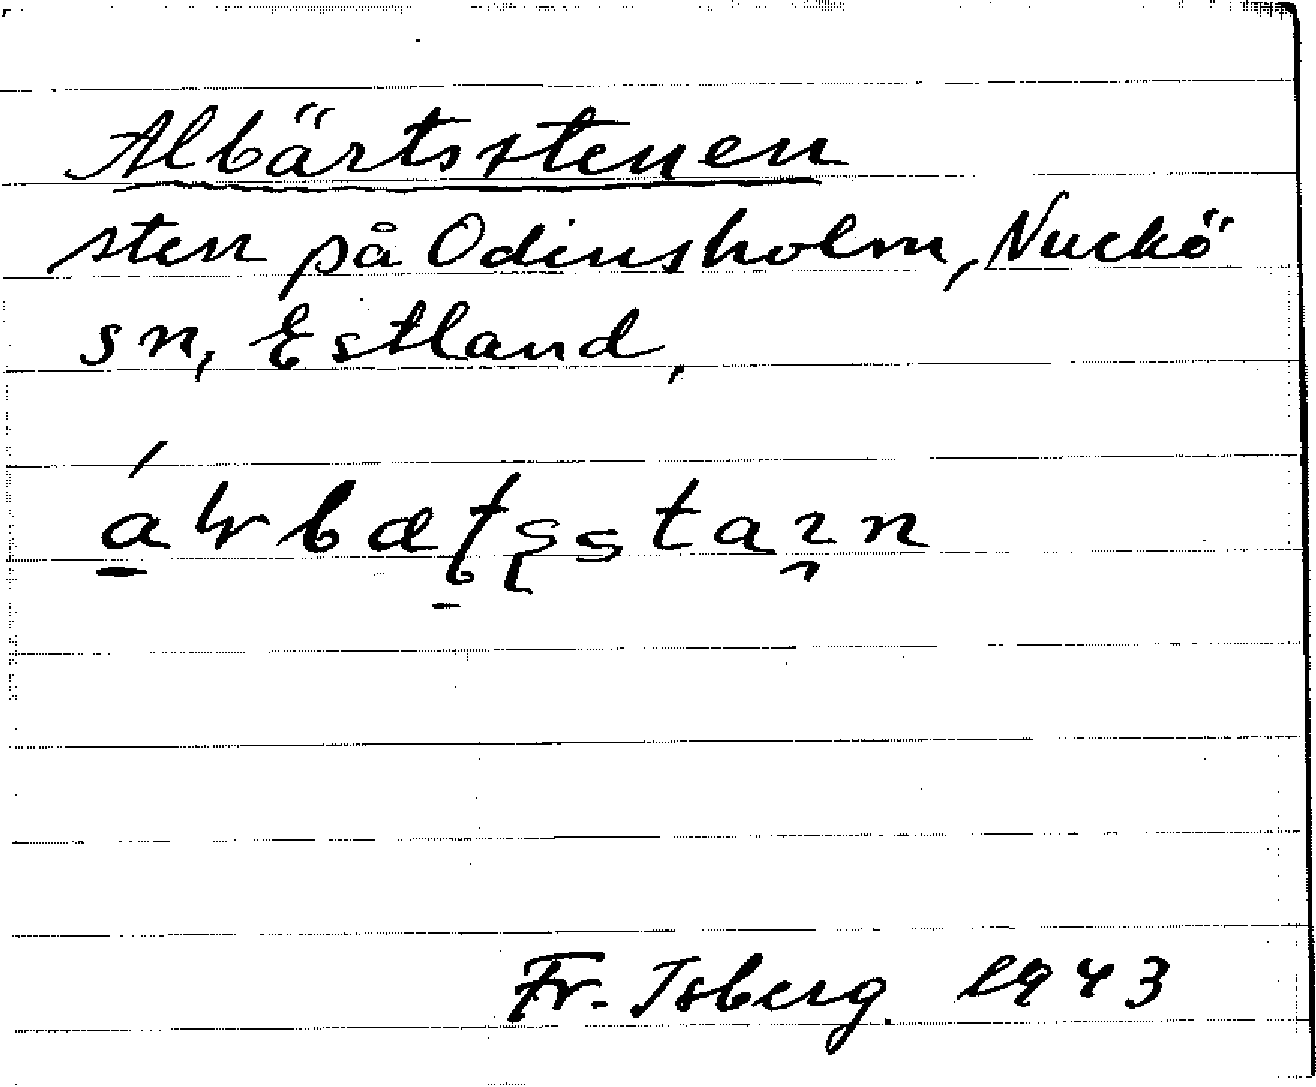 Albärtsstenen
sten på Odinsholm, Nuckö
sn, Estland,
Fr. Isberg. 1943